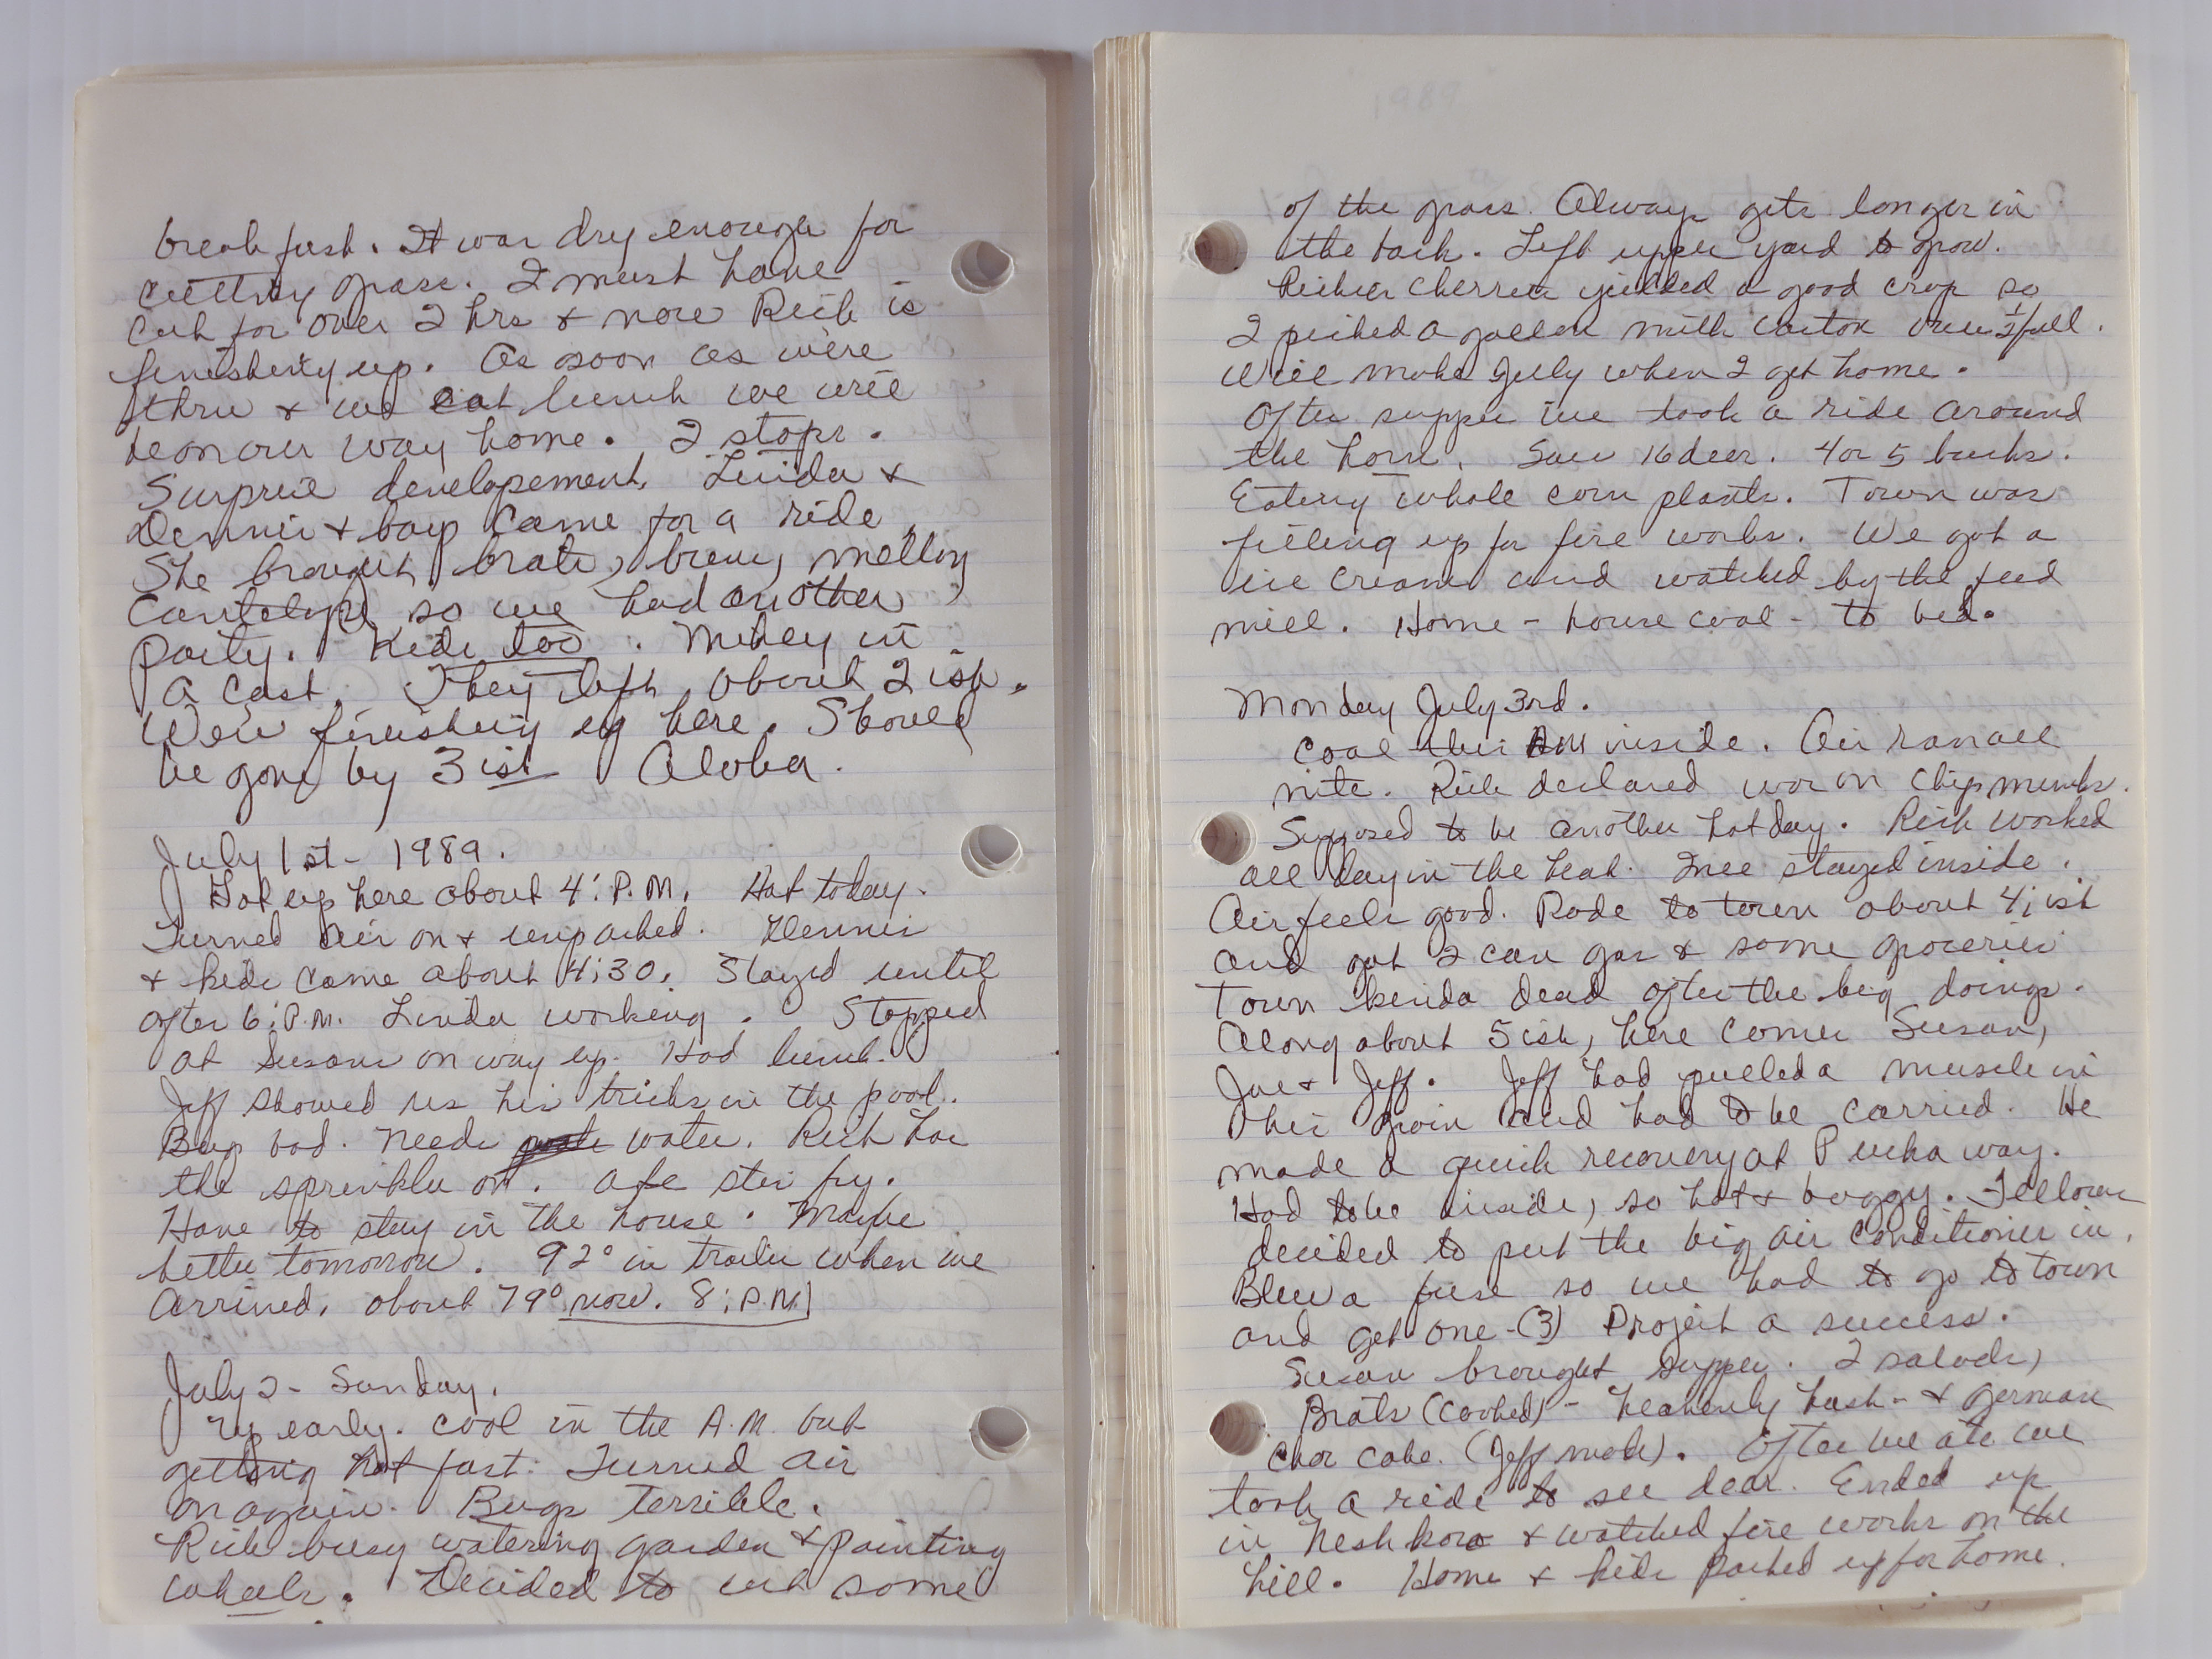 breakfast. It was dry enough for
cutting grass. I must have
cut for over 2 hrs & now Rich is
finishing up. As soon as we're
thru & we eat lunch we will
be on our way home. 2 stops.
Surprise developement. Linda &
Dennis & boys came for a ride.
She brought brats, brew, mellon
cantelope so we had another
party. Kids too. Mikey in
a cast. They left about 2 ish.
We're finishing up here. Should
be gone by 3 ish Aloha.
July 1st - 1989.
Got up here about 4: P.M. Hot today.
Turned air on & unpacked. Dennis
& kids came about 4:30. Stayed until
after 6: P.M. Linda working. Stopped
at Susans on way up. Had lunch.
Jeff showed us his tricks in the pool.
Bugs bad. Needs water. Rich has
the sprinkler on. Ate stir fry.
Have to stay in the house. Maybe
better tomorrow. 92° in trailer when we
arrived, about 79° now. 8: P.M.
July 2 - Sunday.
Up early. Cool in the A.M. but
getting hot fast. Turned air
on again. Bugs terrible.
Rich busy watering garden & painting
wheels. Decided to cut some
1989
of the grass. Always gets longer in
the back. Left upper yard to grow.
Richies cherries yielded a good crop so
I picked a gallon milk carton over ½ full.
Will make jelly when I get home.
After supper we took a ride around
the horn. Saw 16 deer. 4 or 5 bucks.
Eating whole corn plants. Town was
filling up for fire works. We got a
ice cream and watched by the feed
mill. Home - house cool - to bed.
Monday July 3rd.
Cool this AM inside. Air ran all
nite. Rich declared war on chipmunks.
Supposed to be another hot day. Rich worked
all day in the heat. Mee stayed inside.
Air feels good. Rode to town about 4: ish
and got 2 can gas & some groceries
Town kinda dead after the big doings.
Along about 5 ish, here comes Susan,
Joe & Jeff. Jeff had pulled a muscle in
his groin and had to be carried. He
made a quick recovery at Puckaway.
Had to be inside, so hot & buggy. Fellows
decided to put the big air conditioner in.
Blew a fuse so we had to go to town
and get one - (3) Project a success.
Susan brought supper. 2 salads,
Brats (cooked) - heavenly hash - & german
choc cake. (Jeff made). After we ate we
took a ride to see dear. Ended up
in Neshkoro & watched fire works on the
hill. Home & kids packed up for home.